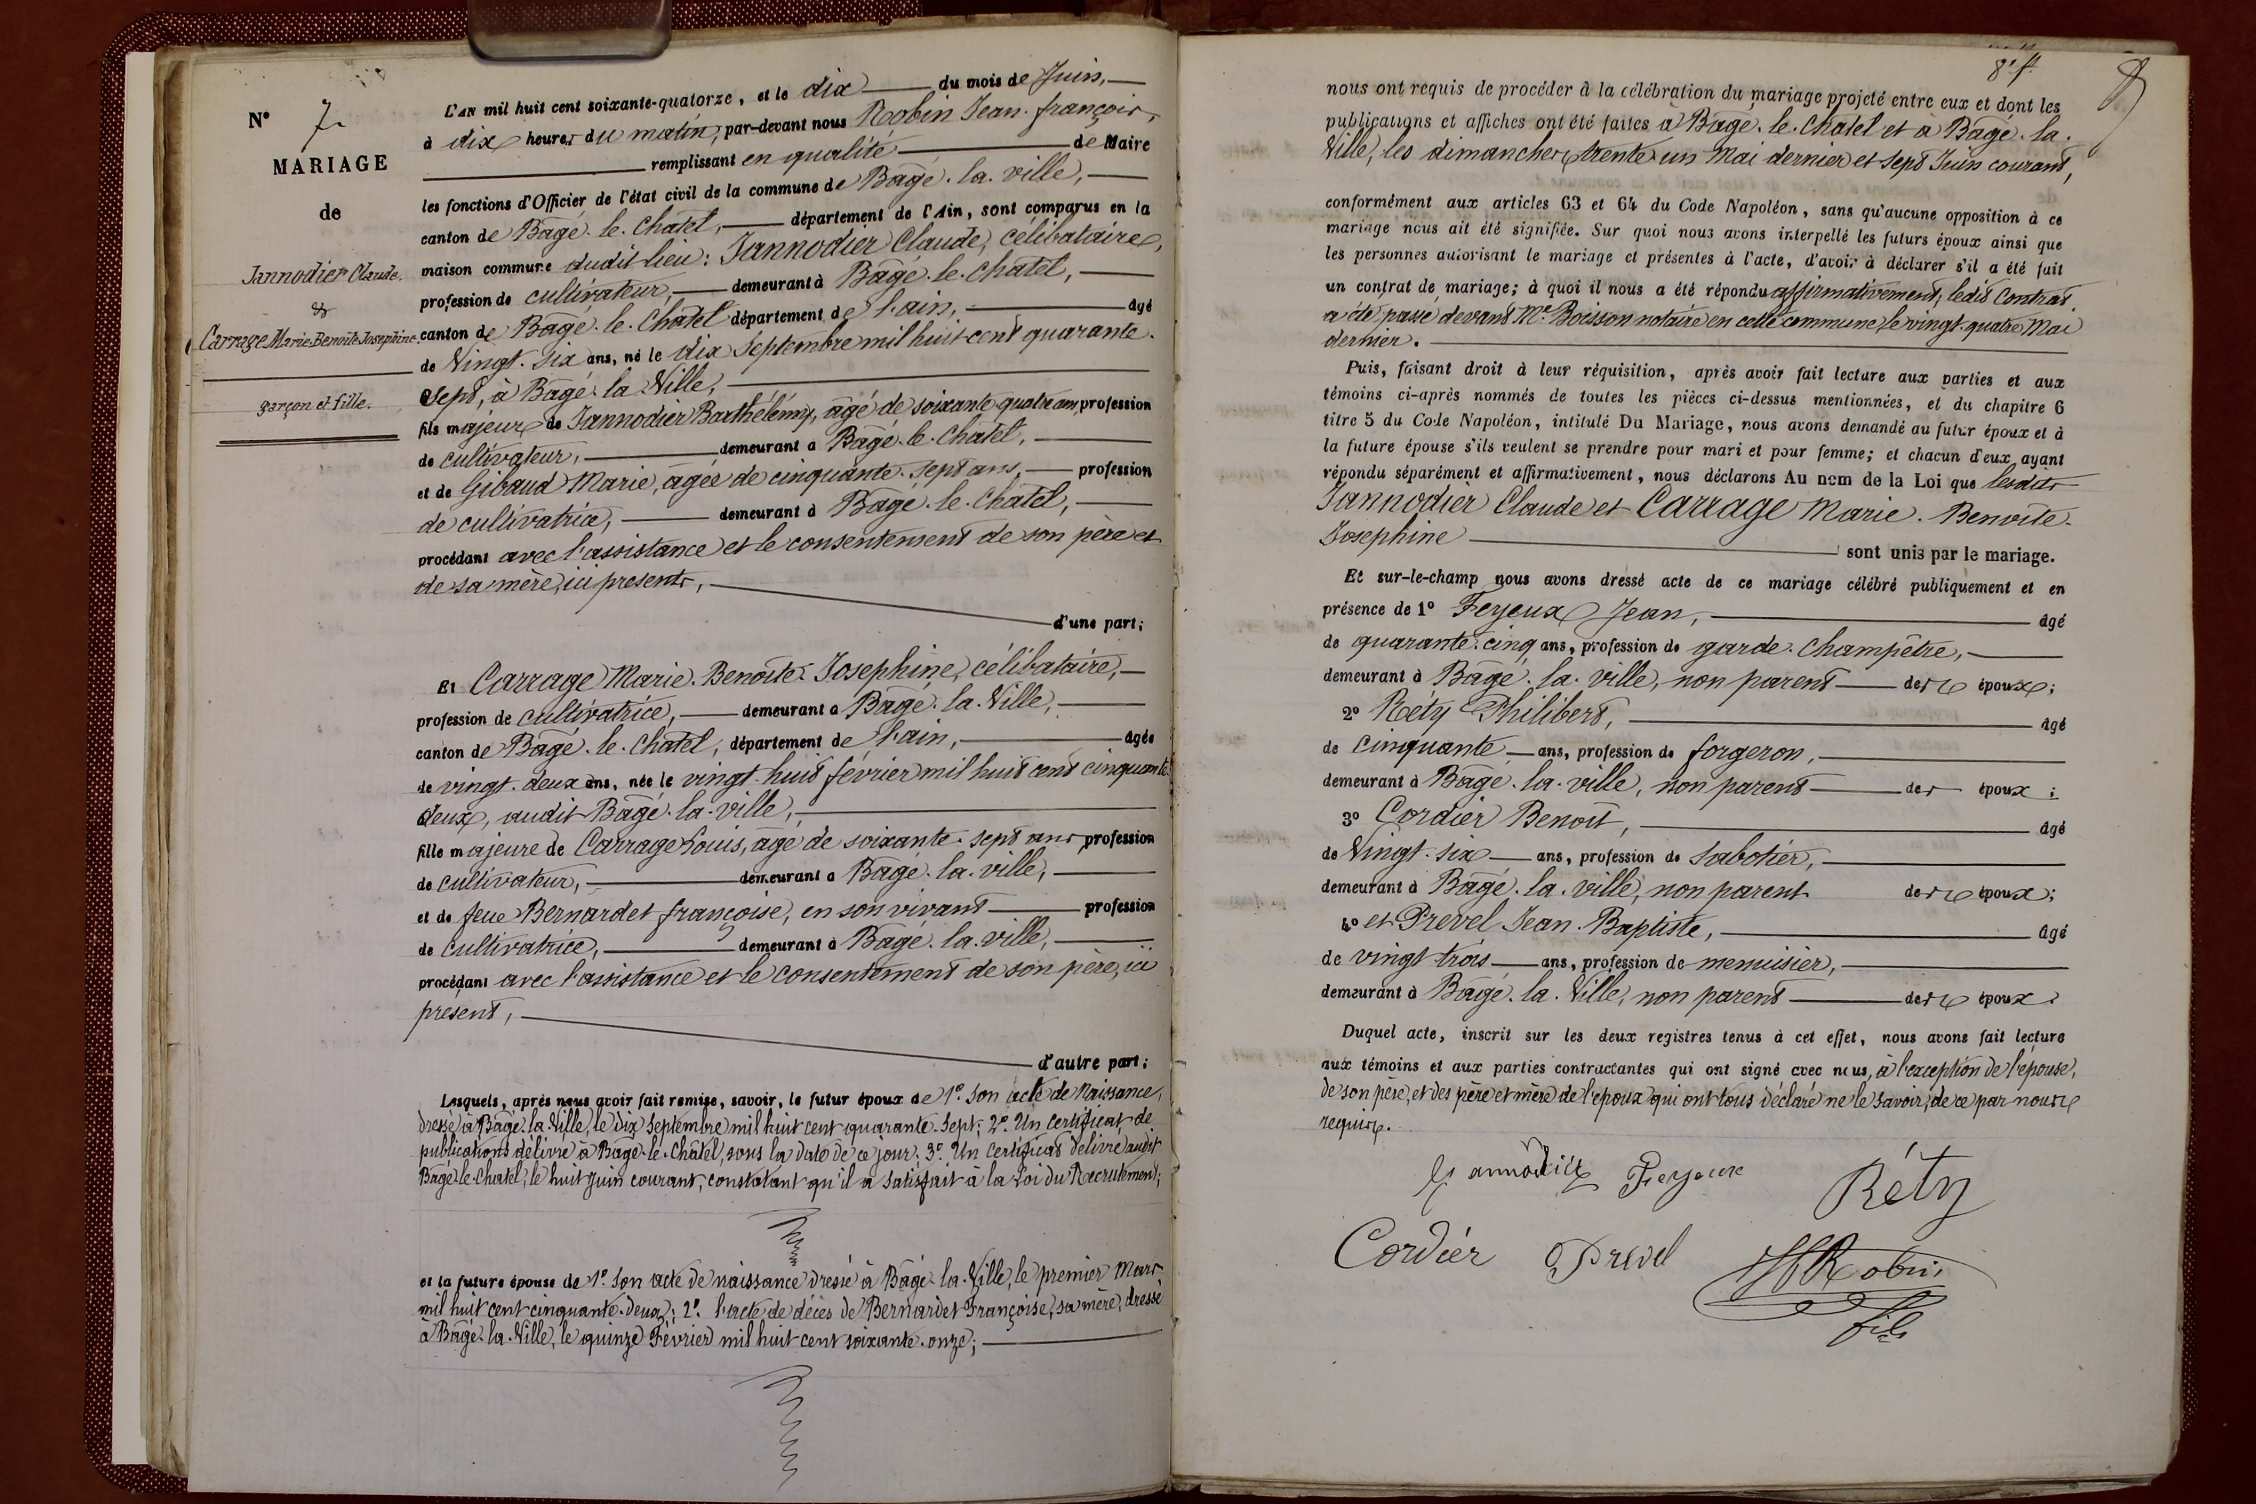 N° 7
MARIAGE
de
Jannodier Claude.
&
Carrage Marie Benoîte Josephine.
garçon et fille.
L'AN mil huit cent soixante-quatorze, et le dix du mois de Juin,
à dix heures du matin, par-devant nous Robin Jean-françois,
remplissant en qualité de Maire
les fonctions d'Officier de l'état civil de la commune de Bâgé-la-ville,
canton de Bâgé-le-Châtel, département de l'Ain, sont comparus en la
maison commune dudit lieu: Jannodier Claude, célibataire,
profession de cultivateur, demeurant à Bâgé-le-Châtel,
canton de Bâgé-le-Châtel département de l'ain, âgé
de Vingt-six ans, né le dix Septembre mil huit cent quarante-
Sept, à Bâgé-la-Ville,
fils majeur de Jannodier Barthélémy, âgé de soixante quatre ans, profession
de cultivateur, demeurant à Bâgé-le-Châtel,
et de Gibaud Marie, âgée de cinquante-sept ans, profession
de cultivatrice, demeurant à Bâgé-le-Châtel,
procédant avec l'assistance et le consentement de son père et
de sa mère, ici présents,
d'une part;
Et Carrage Marie-Benoîte-Josephine, célibataire,
profession de cultivatrice, demeurant à Bâgé-la-Ville,
canton de Bâgé-le-Châtel, département de l'ain, âgée
de vingt-deux ans, née le vingt-huit février mil huit cent cinquante
deux, audit Bâgé-la-ville,
fille majeure de Carrage Louis, âgé de soixante-sept ans profession
de cultivateur, demeurant à Bâgé-la-ville,
et de feue Bernardet françoise, en son vivant profession
de cultivatrice, demeurant à Bâgé-la-ville,
procédant avec l'assistance et le consentement de son père, ici
présent,
d'autre part;
Lesquels, après nous avoir fait remise, savoir, le futur époux de 1° Son acte de Naissance,
dressé à Bâgé-la-Ville, le dix Septembre mil huit cent quarante-Sept; 2° Un certificat de
publications délivré à Bâgé-le-Châtel, sous la date de ce jour; 3° Un certificat délivré audit
Bâgé-le-Châtel, le huit Juin courant, constatant qu'il a satisfait à la Loi du Recrutement;
et la future épouse de 1° Son acte de naissance dressé à Bâgé-la-Ville, le premier Mars
mil huit cent cinquante-deux; 2° l'acte de décès de Bernardet Françoise, sa mère, dressé
à Bâgé-la-Ville, le quinze Février mil huit cent soixante-onze;
8e ft.
nous ont requis de procéder à la célébration du mariage projeté entre eux et dont les
publications et affiches ont été faites à Bâgé-le-Châtel et à Bâgé-la-
Ville, les dimanches trente un Mai dernier et sept Juin courant,
conformément aux articles 63 et 64 du Code Napoléon, sans qu'aucune opposition à ce
mariage nous ait été signifiée. Sur quoi nous avons interpellé les futurs époux ainsi que
les personnes autorisant le mariage et présentes à l'acte, d'avoir à déclarer s'il a été fait
un contrat de mariage; à quoi il nous a été répondu affirmativement, ledit Contrat
a été passé devant Me Boisson notaire en cette commune le vingt-quatre Mai
dernier.
Puis, faisant droit à leur réquisition, après avoir fait lecture aux parties et aux
témoins ci-après nommés de toutes les pièces ci-dessus mentionnées, et du chapitre 6
titre 5 du Code Napoléon, intitulé Du Mariage, nous avons demandé au futur époux et à
la future épouse s'ils veulent se prendre pour mari et pour femme; et chacun d'eux ayant
répondu séparément et affirmativement, nous déclarons Au nom de la Loi que lesdits
Jannodier Claude et Carrage Marie-Benoîte-
Josephine
sont unis par le mariage.
Et sur-le-champ nous avons dressé acte de ce mariage célébré publiquement et en
présence de 1° Feyeux Jean, âgé
de quarante-cinq ans, profession de garde-Champêtre,
demeurant à Bâgé-la-ville, non parent des époux;
2° Réty Philibert, âgé
de Cinquante ans, profession de forgeron,
demeurant à Bâgé-la-ville, non parent des époux;
3° Cordier Benoit, âgé
de Vingt-six ans, profession de sabotier,
demeurant à Bâgé-la-ville, non parent des époux;
4° et Prevel Jean-Baptiste, âgé
de vingt trois ans, profession de menuisier,
demeurant à Bâgé-la-Ville, non parent des époux.
Duquel acte, inscrit sur les deux registres tenus à cet effet, nous avons fait lecture
aux témoins et aux parties contractantes qui ont signé avec nous, à l'exception de l'épouse,
de son père, et des père et mère de l'époux qui ont tous déclaré ne le savoir, de ce par nous
requis.
Jannodier Feyeux Réty
Cordier Prevel Robin
fils